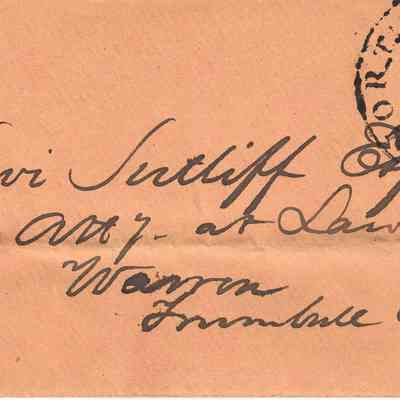 ORT
vi Sutliff Esq
Atty. at Law
Warren
Trumbull